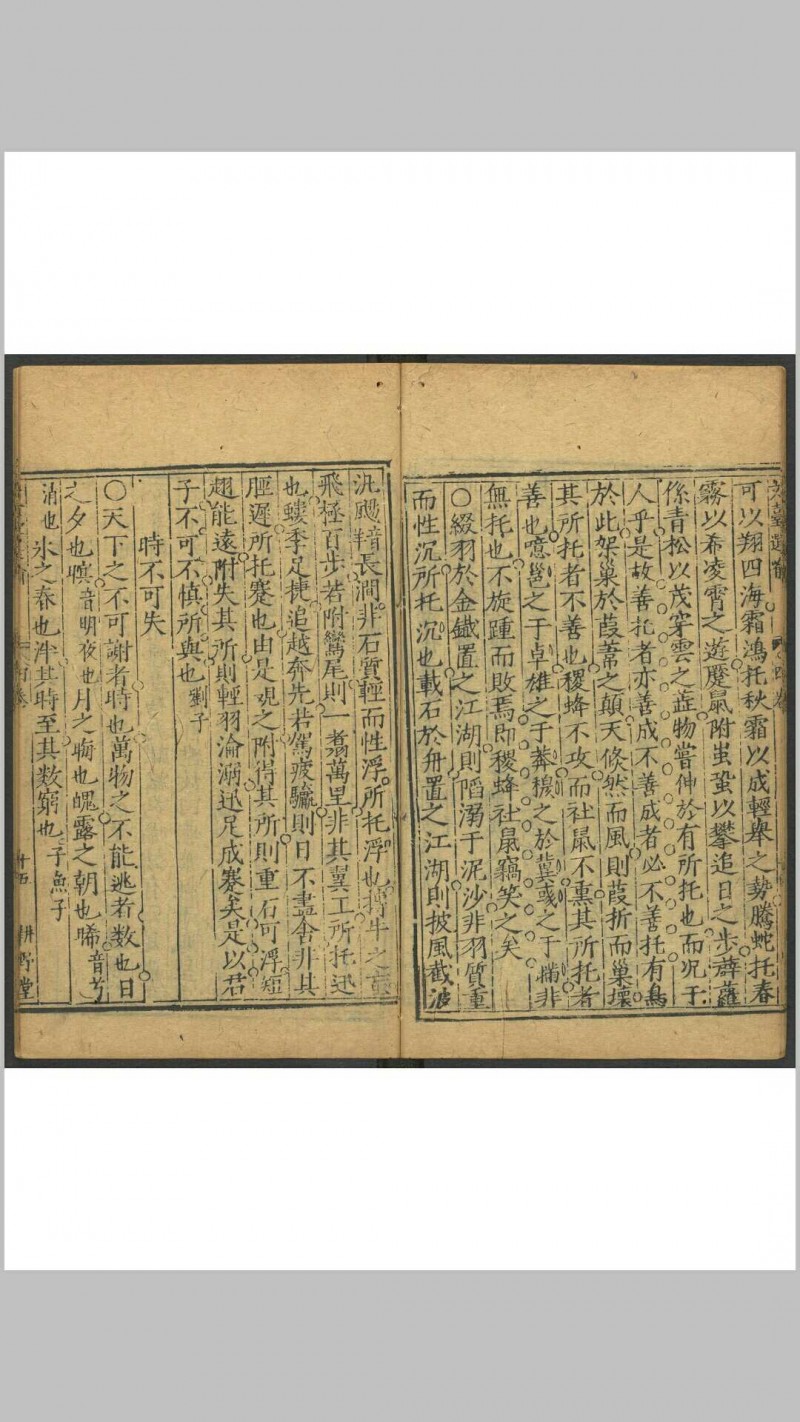 可以翔四海霜鴻托秋霜以成輕舉之勢騰蛇托春
霧以希凌霄之遊蹷鼠附蛩蛩以攀追日之步薜蘿
係青松以茂穿雲之蕋物嘗伸於有所托也而况于
人乎是故善托者亦善成不善成者必不善托有鳥
於此架巢於葭葦之顛天倏然而風則葭折而巢壞
其所托者不善也稷蜂不攻而社鼠不熏其所托者
善也噫邕之于卓雄之于莽穆之於冀彧之于操非
無托也不旋踵而敗焉即稷蜂社鼠竊笑之矣
〇綴羽於金鐵置之江湖則陷溺于泥沙非羽質重
而性沉所托沉也載石於舟置之江湖則披風截波
汎颺長澗非石質輕而性浮所托浮也搏牛之䖟
飛極百步若附鸞尾則一翥萬里非其翼工所托迅
也螻季足捷追越奔先若駕疲驢則日不盡舍非其
脛遲所托蹇也由是觀之附得其所則重石可浮短
翅能遠附失其所則輕羽淪溺迅足成蹇矣是以君
子不可不慎所與也 劉子
時不可失
〇天下之不可謝者時也萬物之不能逃者数也日
之夕也暝音明夜也月之晦也魄露之朝也晞音兮
消也氷之春也泮其時至其数窮也 子魚子
廿五
耕野堂